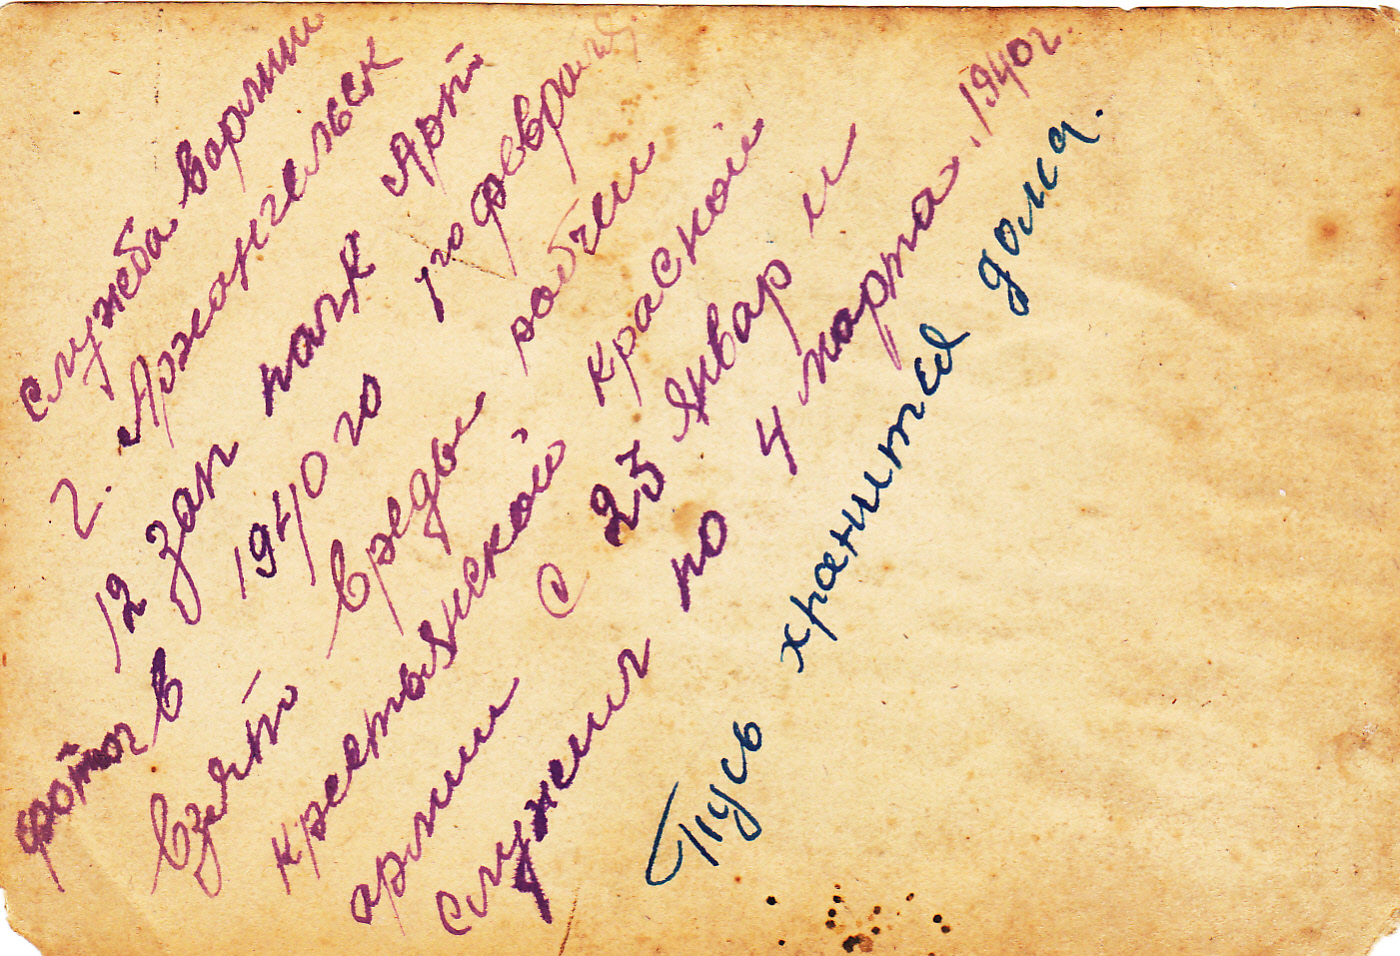 служба вармии
г. Архангельск
12 зап полк Арт
фотог в 1940 го го февраля.
Взят вреды рабчеи
крестьянской красной
армии с 23 январ и
служил по 4 марта. 1940г.
Пусь хранитса дома.